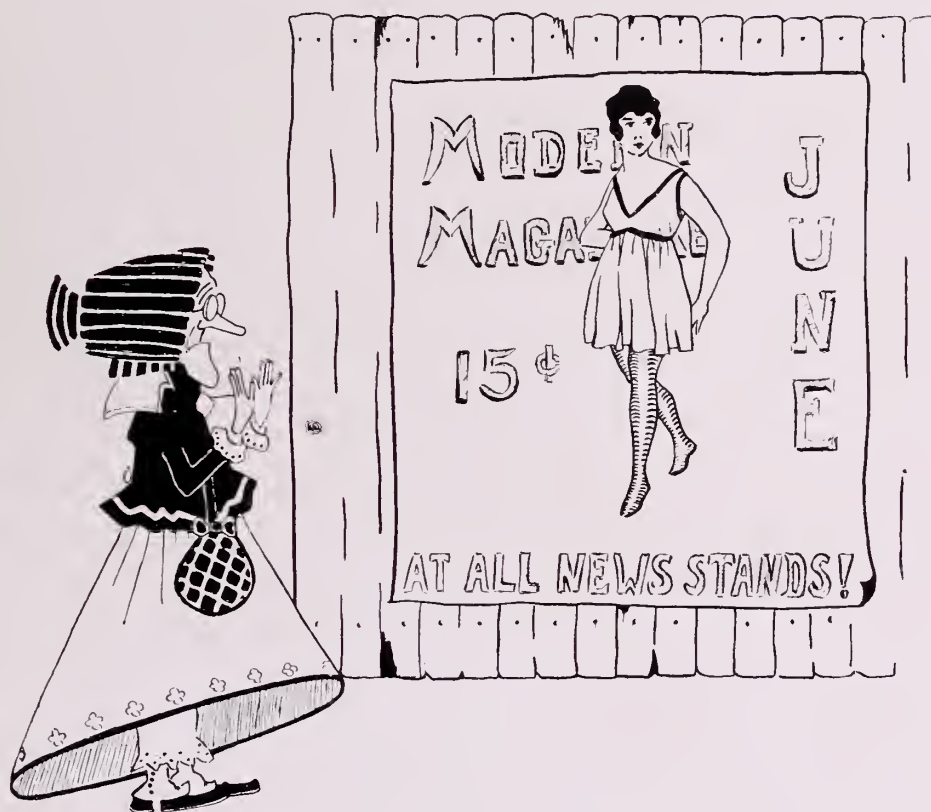 MODERN
MAGAZINE
15¢
JUNE
AT ALL NEWS STANDS!